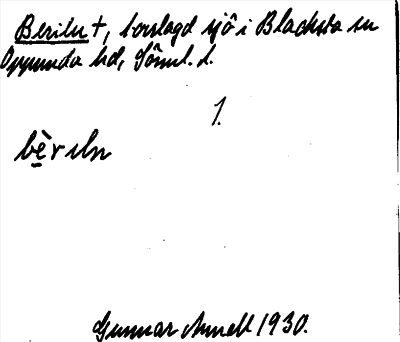 Beriln †, torrlagd sjö i Blacksta sn
Oppunda hd, Söml. l.
1.
bè̱r iln
Gunnar Arnell 1930.